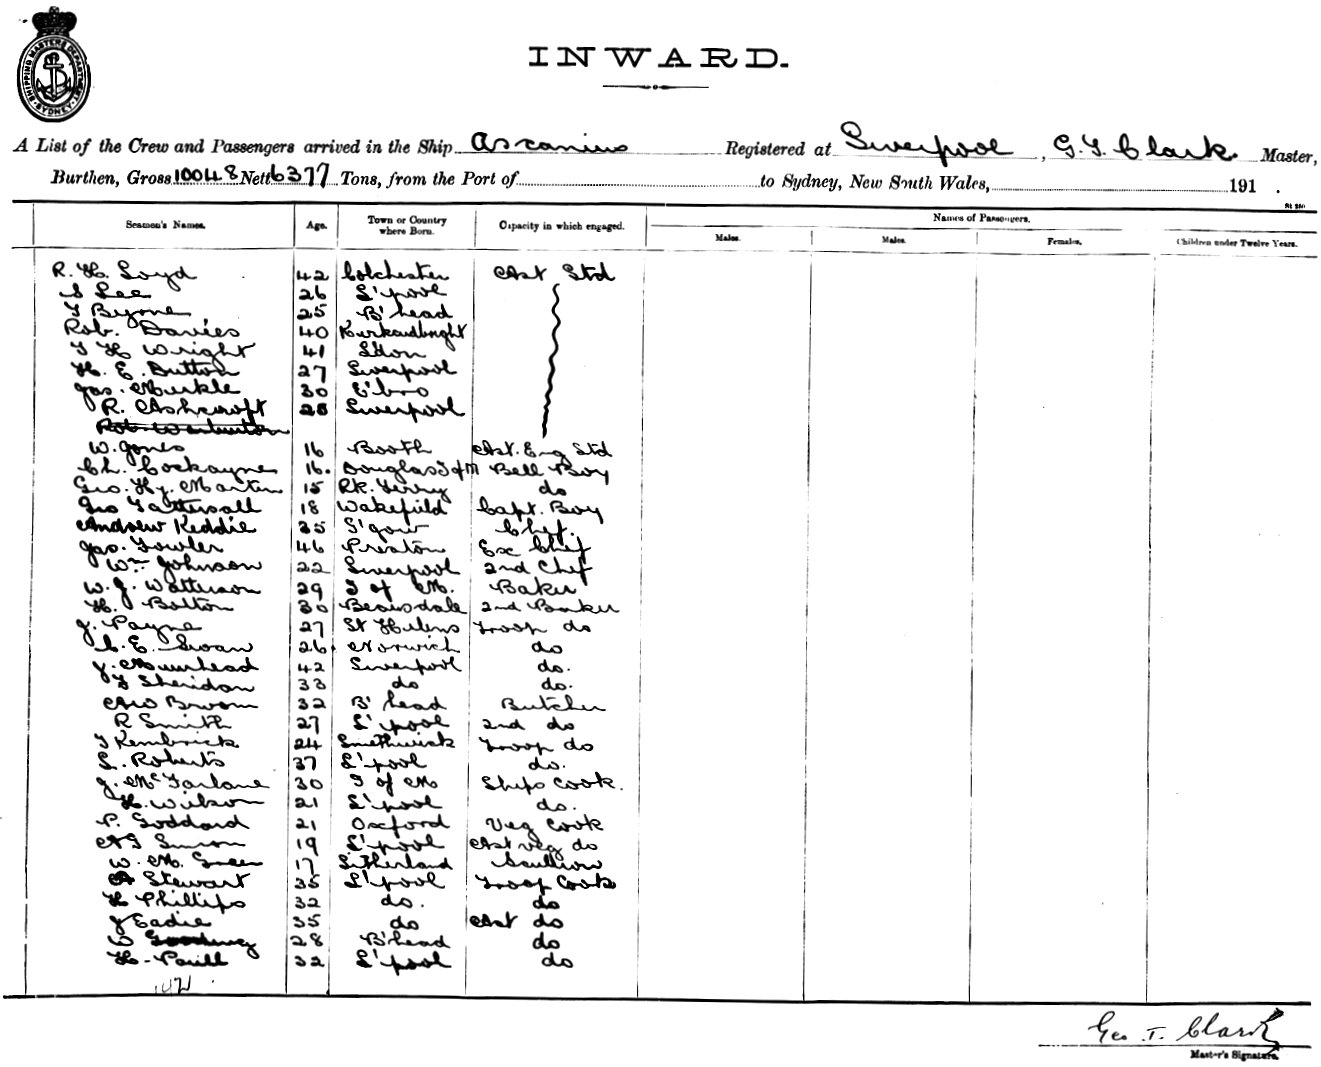 SHIPPING MASTERS DEPARTMENT SYDNEY
INWARD.
A List of the Crew and Passengers arrived in the Ship Ascanius Registered at Liverpool, G. T. Clark Master,
Burthen, Gross 10048 Nett 6377 Tons, from the Port of to Sydney, New South Wales, 191 .
Names of Passengers.
Seamen's Names. Age. Town or Country where Born. Capacity in which engaged. Males. Males. Females. Children under Twelve Years.
R. H. Loyd 42 Colchester Ast Std
S Lee 26 L'pool
T Byrne 25 B'head
Rob. Davies 40 Kurkcudbright
T H Wright 41 Ldon
H. E. Dutton 27 Liverpool
Jas. Murkle 30 E'bro
R. Ashcroft 28 Liverpool
Rob. Warburton
W. Jones 16 Booth Ast. Eng Std
Ch. Cockayne 16. Douglas I of M Bell Boy
Geo. Hy. Martin 15 Rk. Ferry do
Geo Tattersall 18 Wakefield Capt. Boy
Andrew Keddie 35 G'gow Chef.
Jas. Fowler 46 Preston Ex Chef
Wm Johnson 22 Liverpool 2nd Chef
W. J. Watterson 29 I of M. Baker
H. Bolton 30 2nd Baker
J. Payne 27 St Helens Troop do
C. E. Swan 26 Norwich do
J. Muirhead 42 Liverpool do.
T Sheridan 33 do do.
AW Broom 32 B'head Butcher
R Smith 27 L'pool 2nd do
T Kembrick 24 Smethwick Troop do
L. Roberts 37 L'pool do.
J. McFarlane 30 I of M Ships Cook.
H. Wilson 21 L'pool do.
P. Goddard 21 Oxford Veg Cook
19 L'pool Ast Veg do
W. M. Green 17 Litherland Scullion
A Stewart 35 L'pool Troop Cook
H Phillips 32 do. do
J Eadie 35 do Ast do
W 28 B'head do
H. Paull 32 L'pool do
Geo. T. Clark
Master's Signature.